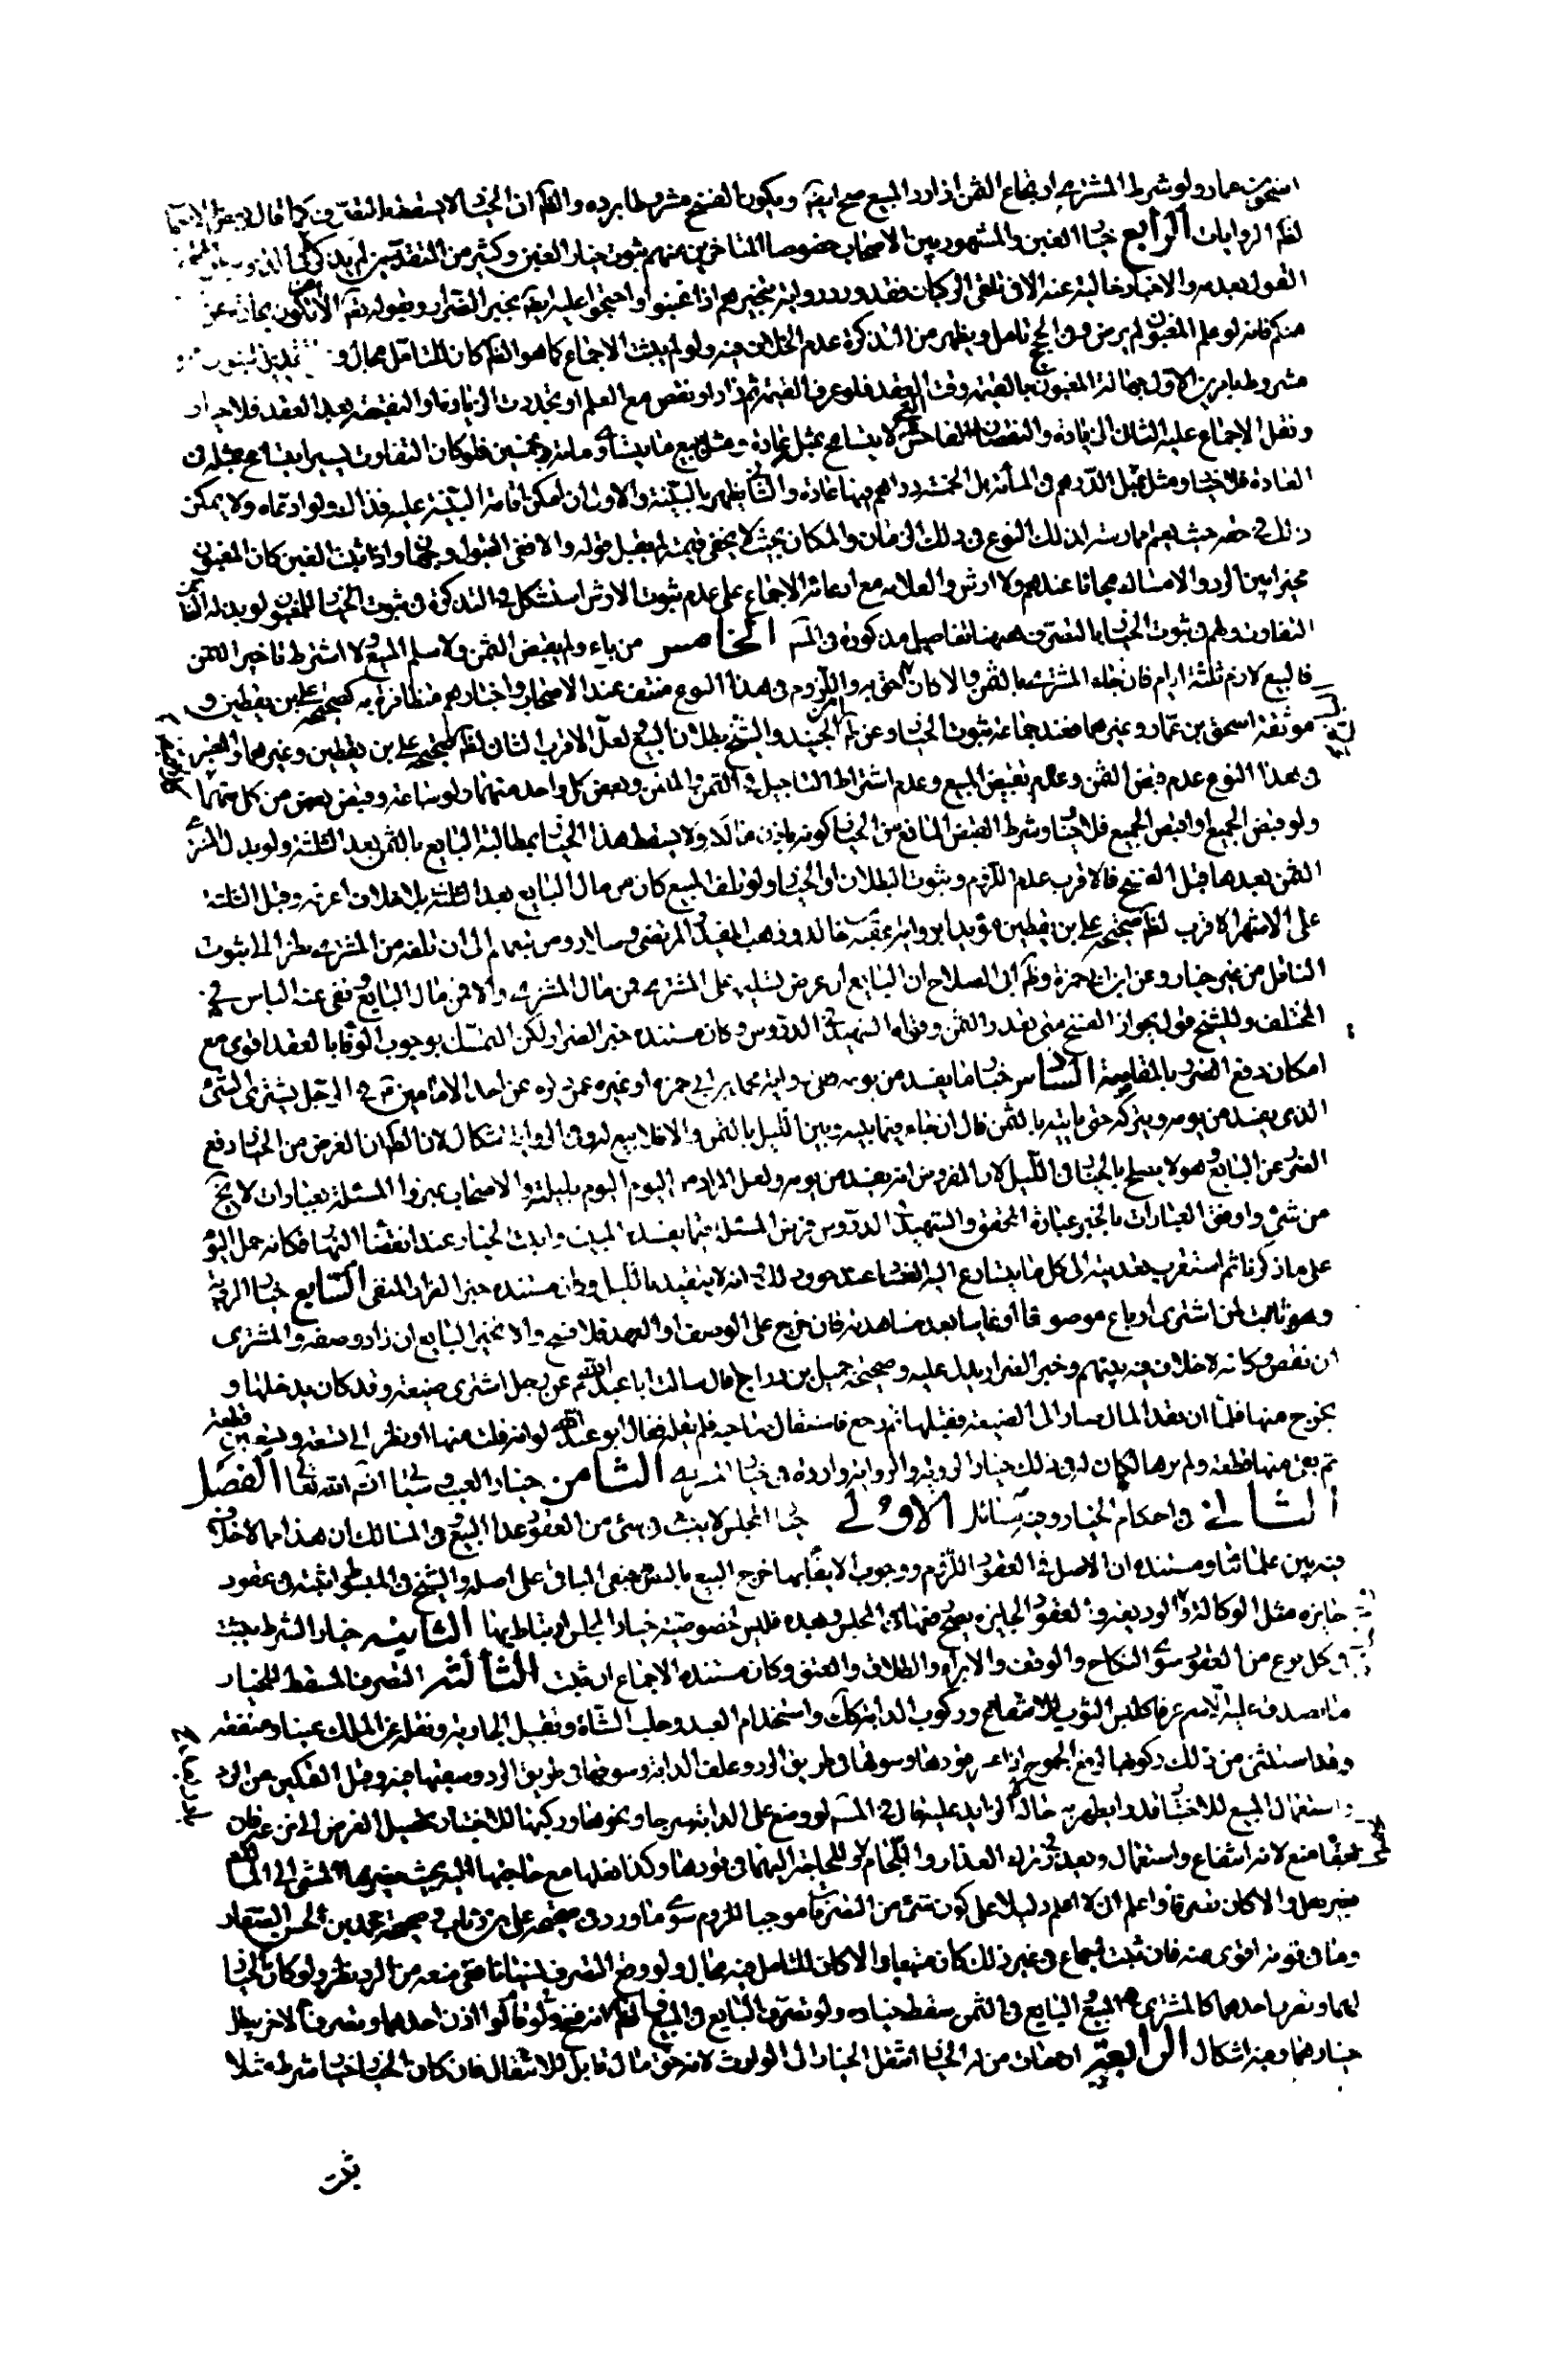 اسحق بن عمار ولو شرط المشترى ارتجاع الثمن اذا رد المبيع صح ايضا ويكون الفسخ مشروطا برده والظ ان الخيار لا يسقط بالتصرف كما قال بعض الاصحاب
لظ الروايات الرابع خيار الغبن والمشهور بين الاصحاب خصوصا المتاخرين منهم ثبوت خيار الغبن وكثير من المتقدمين لم يذكره
القول بعدمه والاخبار خالية عنه الا فى تلقى الركبان فقد ورد رواية بتخييرهم اذا غبنوا واحتجوا عليه ايضا بخبر الضرار وبقوله تع الا ان تكون تجارة عن
منكم فانه لو علم المغبون لم يرض وفى الحجج تامل ويظهر من التذكرة عدم الخلاف فيه ولو لم يثبت الاجماع كما هو الظ كان للتامل مجال و
مشروط بامرين الاول جهالة المغبون بالقيمة وقت العقد فلو عرف القيمة ثم زاد او نقص مع العلم او تجددت الزيادة او النقيصة بعد العقد فلا خيار
ونقل الاجماع عليه الثانى الزيادة والنقصان الفاحش لا يتسامح بمثله عادة مثل بيع ما يساوى مائة بخمسين فلو كان التفاوت يسيرا يتسامح بمثله فى
العادة فلا خيار ومثل بمثل الدرهم فى المائة بل الخمسة دراهم فيها عادة والثانى يظهر بالبينة والاول ان امكن اقامة البينة عليه فذاك ولو ادعاه ولا يمكن
ذلك فى حقه حيث يعلم ممارسته لذلك النوع فى ذلك الزمان والمكان بحيث لا يخفى قيمته لم يقبل قوله والا ففى القبول وجهان واذا ثبت الغبن كان المغبون
مخيرا بين الرد والامساك مجانا عندهم ولا ارش والعلامة مع ادعائه الاجماع على عدم ثبوت الارش استشكل فى التذكرة فى ثبوت الخيار للمغبون لو بذل له الغابن
التفاوت ولهم فى ثبوت الخيار بالتصرف ههنا تفاصيل مذكورة فى المسالك الخامس من باع ولم يقبض الثمن ولا سلم المبيع ولا اشترط تاخير الثمن
فالبيع لازم ثلثة ايام فان جاء المشترى بالثمن والا كان احق به واللزوم فى هذا النوع منتف عند الاصحاب واخبارهم متظافرة به كصحيحة على بن يقطين و
موثقة اسحق بن عمار وغيرهما فعند جماعة ثبوت الخيار وعن ابن الجنيد والشيخ بطلان البيع ولعل الاقرب الثانى لظ صحيحة على بن يقطين وغيرها والمعتبر
فى هذا النوع عدم قبض الثمن وعدم تقبيض المبيع وعدم اشتراط التاجيل فى الثمن والمثمن وبعض كل واحد منهما ولو ساعة وقبض بعض من كل منهما
ولو قبض الجميع او اقبض الجميع فلا خيار وشرط القبض المانع من الخيار كونه باذن مالكه ولا يسقط هذا الخيار بمطالبة البايع بالثمن بعد الثلثة ولو بذل المشترى
الثمن بعدها قبل الفسخ فالاقرب عدم اللزوم وثبوت البطلان او الخيار ولو تلف المبيع كان من مال البايع بعد الثلثة بلا خلاف اعرفه وقبل الثلثة
على الاشهر الاقرب لظ صحيحة على بن يقطين مؤيدا برواية عقبة بن خالد وذهب المفيد والمرتضى وسلار ومن تبعهم الى ان تلفه من المشترى نظرا الى ثبوت
الناقل من غير خيار وعن ابن حمزة وظ ابى الصلاح ان البايع ان عرض تسليمه على المشترى فمن مال المشترى والا فمن مال البايع ونفى عنه الباس فى
المختلف وللشيخ قول بجواز الفسخ متى تعذر الثمن وقواه الشهيد فى الدروس وكان مستنده خبر الضرار ولكن التمسك بوجوب الوفاء بالعقد اقوى مع
امكان دفع الضرر بالمقاصة السادس خيار ما يفسد من يومه وفى رواية محمد بن ابى حمزة او غيره عمن ذكره عن احد الامامين ع فى الرجل يشترى الشئ
الذى يفسد من يومه ويتركه حتى ياتيه بالثمن قال ان جاء فيما بينه وبين الليل بالثمن والا فلا بيع له وفى الرواية اشكال لان الظ ان الغرض من الخيار دفع
الضرر عن البايع وهو لا يصلح بالخيار فى الليل لان المفروض انه يفسد من يومه ولعل المراد من اليوم اليوم بليلته والاصحاب عبروا المسئلة بعبارات لا تخ
من شئ واوفق العبارات بالخبر عبارة المحقق والشهيد فى الدروس فرض المسئلة فيما يفسده المبيت واثبت الخيار عند انقضاء النهار فكانه حمل اليوم
على ما ذكرنا ثم استقرب تعديته الى كل ما يتسارع اليه الفساد عند خوف ذلك وانه لا يتقيد بالليل وكان مستنده خبر الضرار المنفى السابع خيار الرؤية
وهو ثابت لمن اشترى او باع موصوفا او غايبا بعد مشاهدته فان خرج على الوصف او العهد فلا فسخ والا تخير البايع ان زاد وصفه والمشترى
ان نقص وكانه لا خلاف فيه بينهم وخبر الضرار يدل عليه وصحيحة جميل بن دراج قال سالت ابا عبد الله ع عن رجل اشترى ضيعة وقد كان يدخلها و
يخرج منها فلما ان نقد المال صار الى الضيعة فقبلها ثم رجع فاستقال صاحبه فلم يقله فقال ابو عبد الله ع لو انه قلب منها او نظر الى تسعة وتسعين قطعة
ثم بقى منها قطعة ولم يرها لكان له فى ذلك خيار الرؤية والرواية واردة فى خيار المشترى الثامن خيار العيب وسيجئ انشاء الله تعالى الفصل
الثانى فى احكام الخيار وفيه مسائل الاولى خيار المجلس لا يثبت فى شئ من العقود عدا البيع وفى المسالك ان هذا مما لا خلاف
فيه بين علمائنا ومستنده ان الاصل فى العقود اللزوم ووجوب الايفاء بها خرج البيع بالنص فبقى الباقى على اصله والشيخ فى المبسوط اثبته فى عقود
جايزه مثل الوكالة والوديعة والعقود الجايزه يصح فسخها فى المجلس وبعده فليس خصوصية خيار المجلس ارتباط بها الثانية خيار الشرط يثبت
فى كل نوع من العقود سوى النكاح والوقف والابراء والطلاق والعتق وكان مستنده الاجماع ان ثبت الثالثة التصرف المسقط للخيار
ما يصدق عليه الاسم عرفا كلبس الثوب للانتفاع وركوب الدابة كك واستخدام العبد وحلب الشاة وتقبيل الجارية ونقله عن الملك عينا ومنفعة
وقد استثنى من ذلك ركوبها لدفع الجموح اذا عسر قودها وسوقها فى طريق الرد وعلف الدابة وسقيها فى طريق الرد وسقيها فيه وقبل التمكين من الرد
واستعمال المبيع للاختبار قدرا يظهر به حاله لا الزايد عليه قال فى المسالك لو وضع على الدابة سرجا ونحوه او ركبها للاختبار وتحصيل الغرض الى
منع لانه انتفاع واستعمال ويعذر فى ترك العذار واللجام للحاجة اليهما فى قودها وكذا نعلها مع حاجتها اليه بحيث يضرها المشى الى المالك
بغير نعل والا كان تصرفا واعلم انى لا اعلم دليلا على كون شئ من التصرفات موجبا للزوم سوى ما ورد فى صحيحة على بن رئاب وصحيحة محمد بن الحسن الصفار
وما فى قوته او اقوى منه فان ثبت اجماع فى غير ذلك كان متبعا والا كان للتامل فيه مجال ولو وقع التصرف نسيانا ففى منعه من الرد نظر ولو كان الخيار
لهما وتصرف احدهما كالمشترى فى المبيع والبايع فى الثمن سقط خياره ولو تصرف البايع فى المبيع فالظ انه فسخ ولو اذن احدهما وتصرف الاخر بطل
خيارهما وفيه اشكال الرابعة اذا مات من له الخيار انتقل الخيار الى الوارث لانه حق مالى قابل للانتقال فان كان الخيار خيار شرط مثلا
ثبت